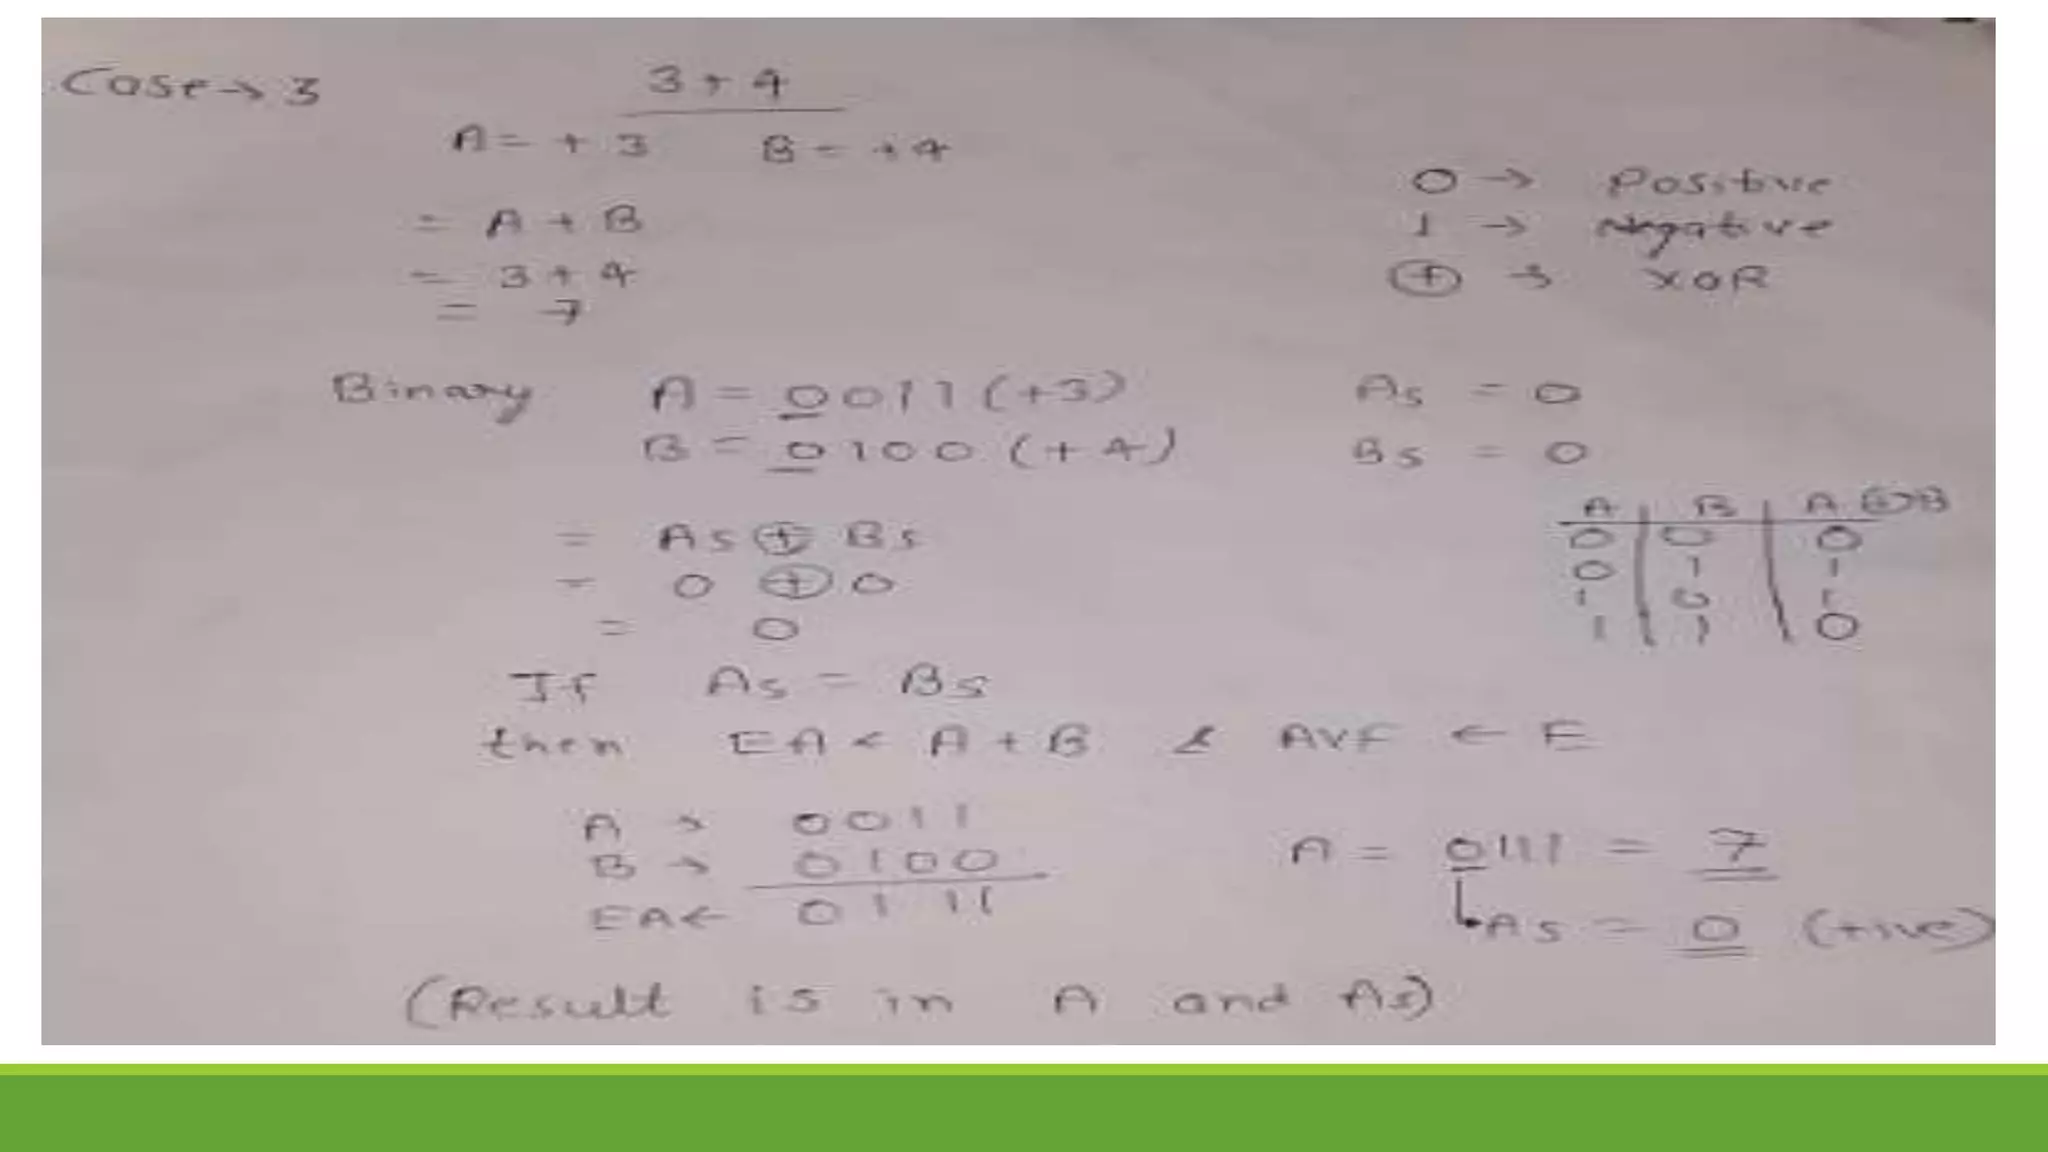 Case → 3
3 + 4
A = + 3 B = + 4
= A + B
= 3 + 4
= 7
0 → Positive
1 → Negative
⊕ → XOR
Binary A = 0011 (+3)
B = 0100 (+4)
As = 0
Bs = 0
= As ⊕ Bs
= 0 ⊕ 0
= 0
A | B | A ⊕ B
0 | 0 | 0
0 | 1 | 1
1 | 0 | 1
1 | 1 | 0
If As = Bs
then EA ← A + B & AVF ← E
A → 0011
B → 0100
EA ← 0111
A = 0111 = 7
As = 0 (+ive)
(Result is in A and As)